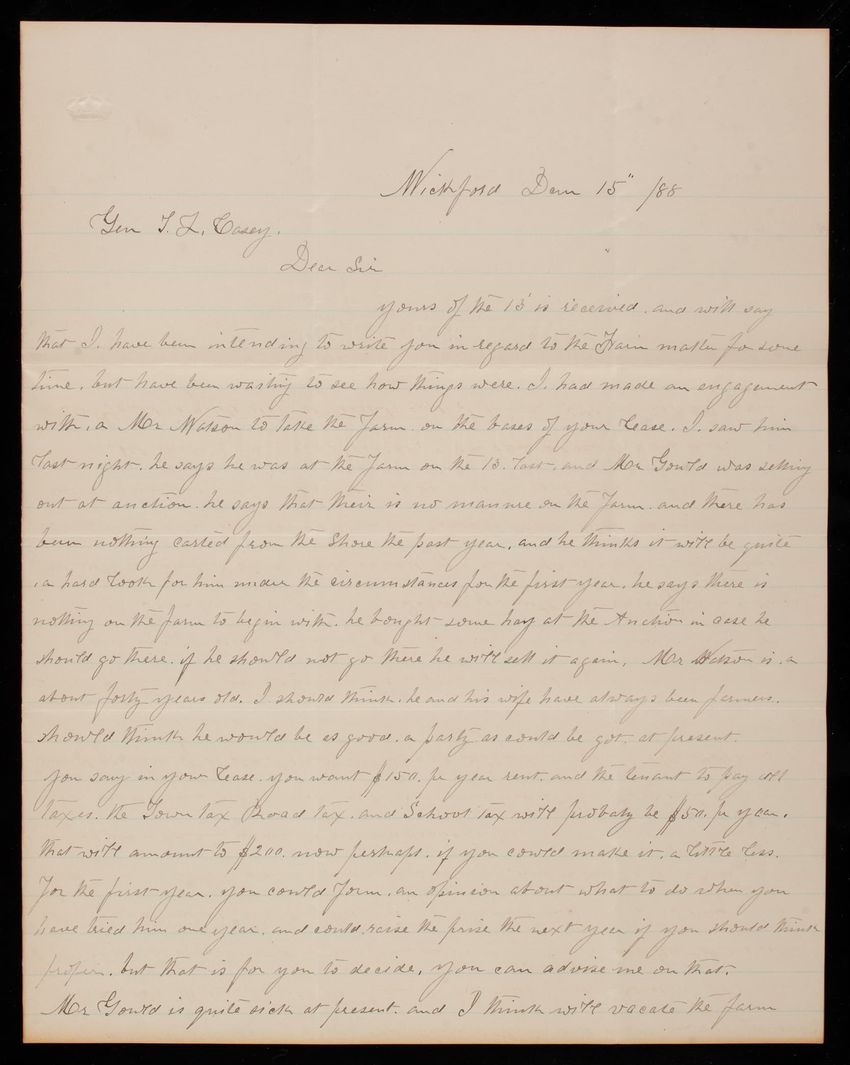 Wickford Dem 15" /88
Gen T. L. Casey.
Dear Sir
yours of the 13" is received. and will say
that I. have been intending to write you in regard to the Farm matter for some
time, but have been waiting to see how things were. I. had made an engagement
with, a Mr Watson to take the Farm on the bases of your Lease. I. saw him
Last night. he says he was at the Farm on the 13. Last. and Mr Gould was selling
out at auction. he says that their is no manure on the Farm. and there has
been nothing carted from the Shore the past year, and he thinks it will be quite
a hard Look for him under the circumstances for the first year. he says there is
nothing on the farm to begin with. he bought some hay at the Auction in case he
should go there. if he should not go there he will sell it again. Mr Watson is. a
about forty years old. I should think. he and his wife have always been farmers.
should think he would be as good. a party as could be got. at present.
you say in your Lease. you want $150. pr year rent. and the tenant to pay all
taxes. the Town tax Road tax. and School tax will probaly be $50. pr year.
that will amount to $200. now perhaps. if you could make it. a little Less.
For the first year. you could Form. an opinion about what to do when you
have tried him one year. and could raise the prise the next year if you should think
proper. but that is for you to decide, you can advise me on that.
Mr Gould is quite sick at present. and I think will vacate the farm